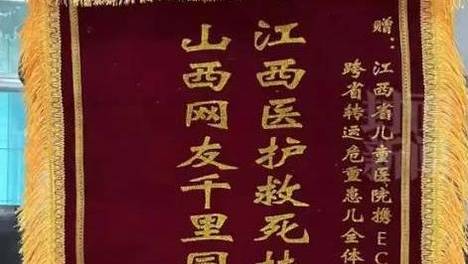 赠：江西省儿童医院携EC
跨省转运危重患儿全体
江西医护救死扶
山西网友千里